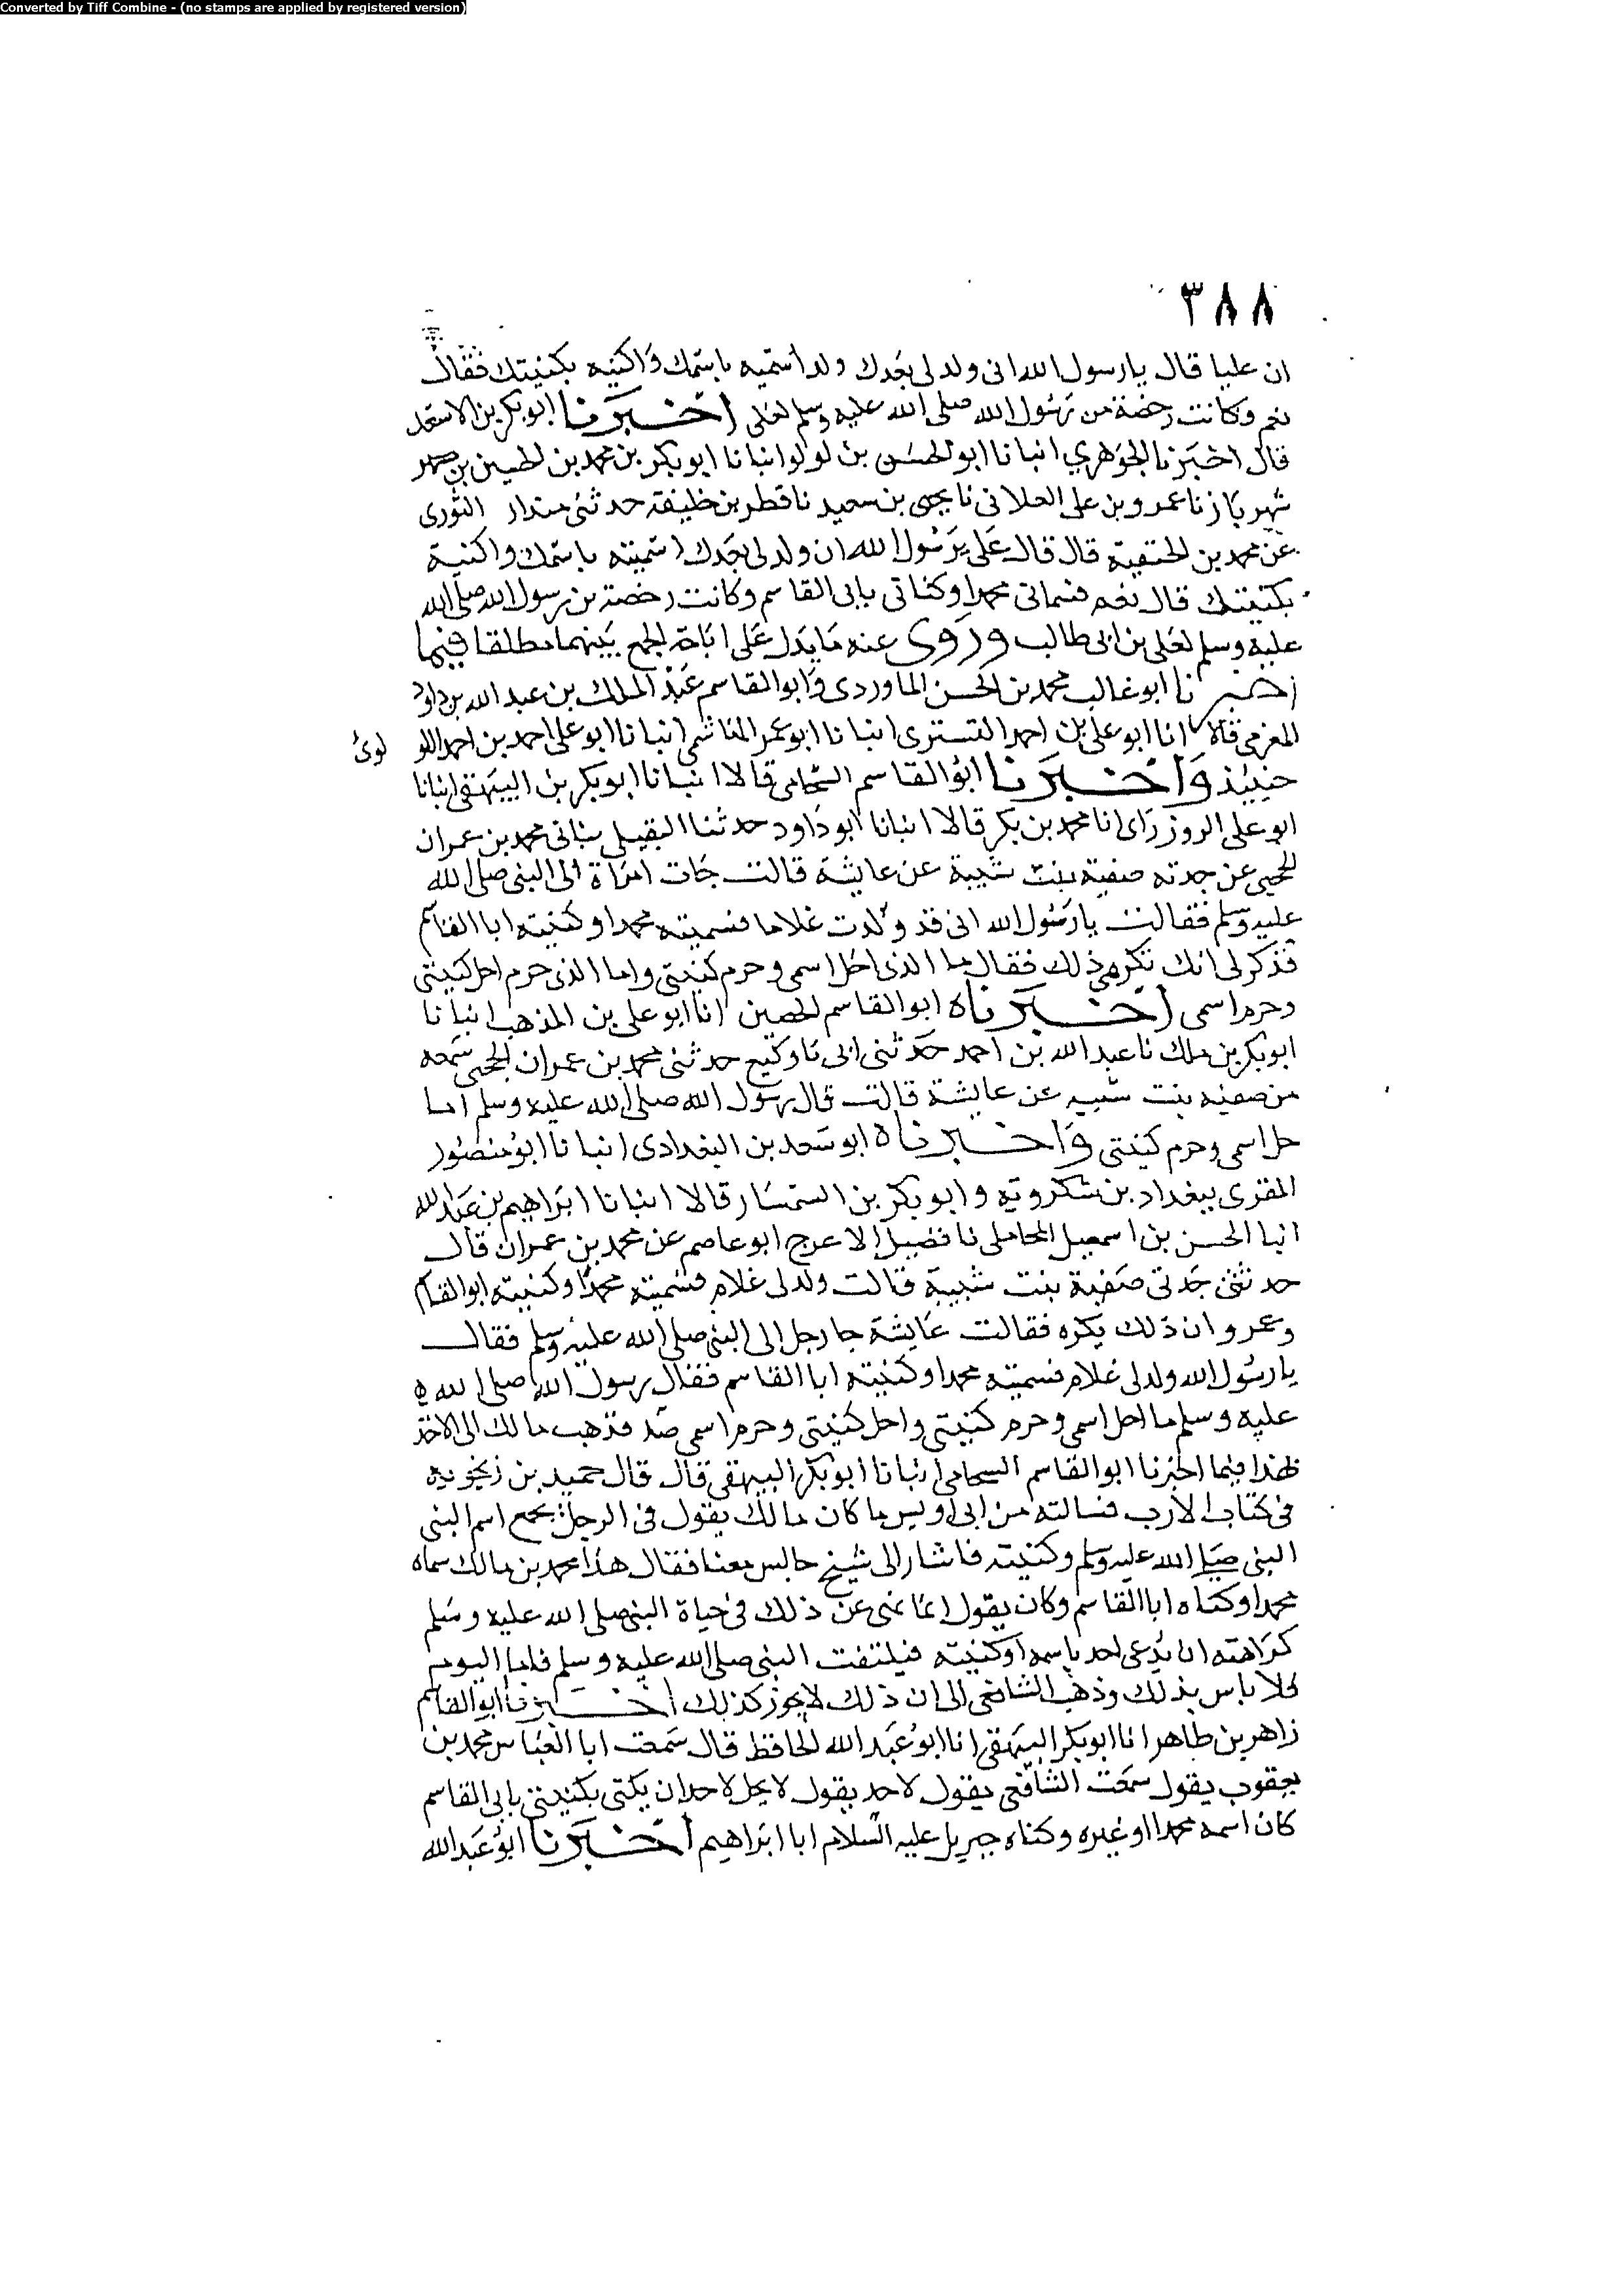 Converted by Tiff Combine - (no stamps are applied by registered version)
٣٨٨
ان عليا قال يارسول الله انى ولد لى بعدك ولد أسميه باسمك واكنيه بكنيتك فقال
نعم وكانت رخصة من رسول الله صلى الله عليه وسلم لعلى اخبرنا ابو بكر بن الاسعد
قال اخبرنا الجوهري انبانا ابو الحسن بن لولو انبانا ابو بكر بن محمد بن الحسين بن
شهريار نا عمرو بن على العلانى نا يحيى بن سعيد نا قطر بن خليفة حدثنى مندار الثورى
عن محمد بن الحنفية قال قال على يرسول الله ان ولد لى بعدك اسميته باسمك واكنية
بكنيتك قال نعم فسمانى محمدا وكنانى بابى القاسم وكانت رخصة من رسول الله صلى الله
عليه وسلم لعلى بن ابى طالب وروى عنه مايدل على اباحة الجمع بينهما مطلقا فيما
اخبرنا ابو غالب محمد بن الحسن الماوردى وابو القاسم عبد الملك بن عبد الله بن داود
المغربى قالا انا ابو على بن احمد التسترى انبانا ابو عمر الهاشمى انبانا ابو على احمد بن احمد اللو لوئ
حينئذ واخبرنا ابو القاسم الشحامى قالا انبانا ابو بكر بن البيهقى انبانا
ابو على الروزراى انا محمد بن بكر قالا انبانا ابو داود حدثنا النفيلى محمد بن عمران
الحجبى عن جدته صفية بنت شيبة عن عايشة قالت جات امراة الى النبى صلى الله
عليه وسلم فقالت يارسول الله انى قد ولدت غلاما فسميته محمدا وكنيته ابا القاسم
فذكر لى انك تكره ذلك فقال ما الذى احل اسمى وحرم كنيتى واما الذى حرم احل كنيتى
وحرم اسمى اخبرناه ابو القاسم الحصين انا ابو على بن المذهب انبانا
ابو بكر بن ملك نا عبد الله بن احمد حدثنى ابى نا وكيع حدثنى محمد بن عمران الحجبى سمعه
من صفيه بنت شيبه عن عايشة قالت قال رسول الله صلى الله عليه وسلم اما
حل اسمى وحرم كنيتى واخبرناه ابو سعد بن البغدادى انبانا ابو منصور
المقرى ببغداد بن شكرويه وابو بكر بن السمسار قالا انبانا ابراهيم بن عبد الله
انبا الحسن بن اسمعيل المحاملى نا فضيل الاعرج ابو عاصم عن محمد بن عمران قال
حدثتنى جدتى صفية بنت شيبة قالت ولد لى غلام فسميته محمدا وكنيته ابو القاسم
وعمرو ان ذلك يكره فقالت عايشة جا رجل الى النبى صلى الله عليه وسلم فقال
يارسول الله ولد لى غلام فسميته محمدا وكنيته ابا القاسم فقال رسول الله صلى الله ه
عليه وسلم ما احل اسمى وحرم كنيتى واحل كنيتى وحرم اسمى قد ذهب مالك الى الاخذ
بهذا فيما اخبرنا ابو القاسم السحامى انبانا ابو بكر البيهقى قال قال حميد بن زنجويه
فى كتاب الارب فسالته من ابى اويس ما كان مالك يقول فى الرجل يجمع اسم النبى
النبى صلى الله عليه وسلم وكنيته فاشار الى شيخ جالس معنا فقال هذا محمد بن مالك سماه
محمدا وكناه ابا القاسم وكان يقول انما نهى عن ذلك فى حياة النبى صلى الله عليه وسلم
كراهته ان يدعى احد باسمه او كنيته فيلتفت النبى صلى الله عليه وسلم فاما اليوم
فلا باس بذلك وذهب الشافعى الى ان ذلك لا يجوز كذلك اخبرنا ابو القاسم
زاهر بن طاهر انا ابو بكر البيهقى انا ابو عبد الله الحافظ قال سمعت ابا العباس محمد بن
يعقوب يقول سمعت الشافعى يقول لاحد يقول لا يحل لاحد ان يكتى بكنيتى بابى القاسم
كان اسمه محمدا او غيره وكناه جبريل عليه السلام ابا ابراهيم اخبرنا ابو عبد الله